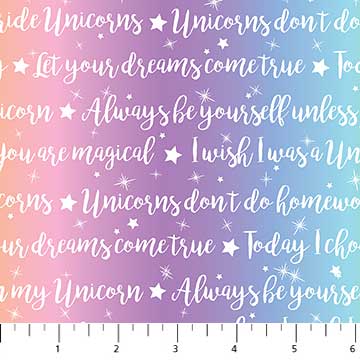 ride Unicorns ★ Unicorns don't do
★ Let your dreams come true ★ Tod
corn ★ Always be yourself unless
you are magical ★ I wish I was a Un
corns ★ Unicorns don't do homewo
ur dreams come true ★ Today I cho
my Unicorn ★ Always be yourse
1 2 3 4 5 6